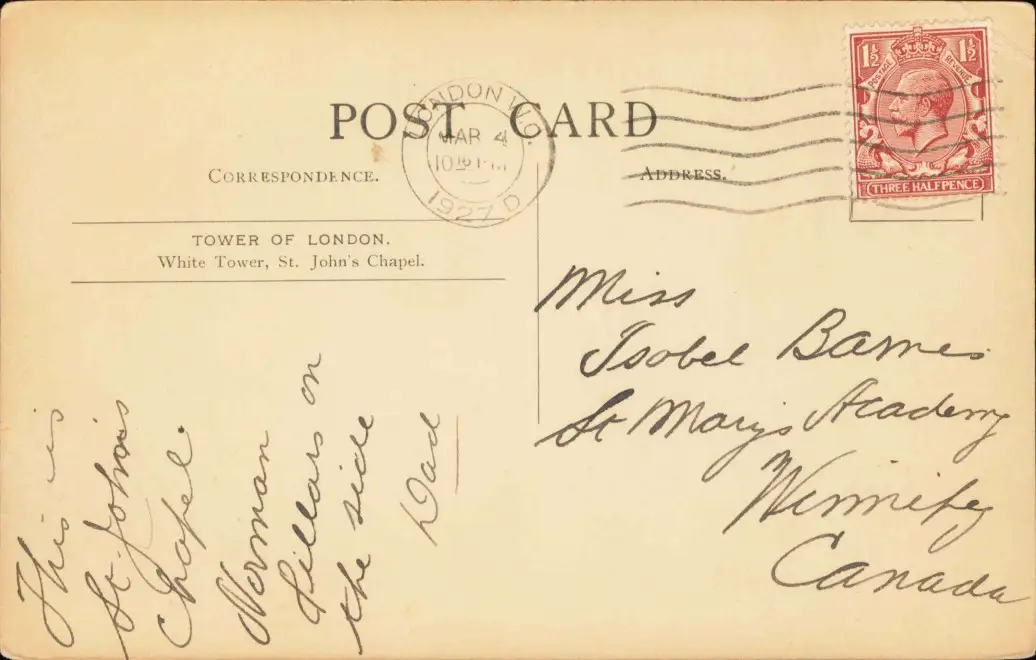 POST CARD
CORRESPONDENCE.
ADDRESS.
TOWER OF LONDON.
White Tower, St. John's Chapel.
LONDON W.9.
MAR 4
1927 D
1½ 1½
POSTAGE REVENUE
THREE HALFPENCE
This is
St. John's
Chapel.
Norman
Pillars on
the side
Dad
Miss
Isobel Barnes
St Mary's Academy
Winnipeg
Canada